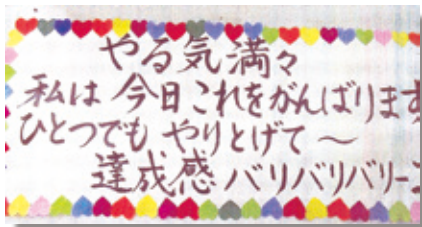 やる気満々
私は今日これをがんばります
ひとつでもやりとげて〜
達成感バリバリバリー